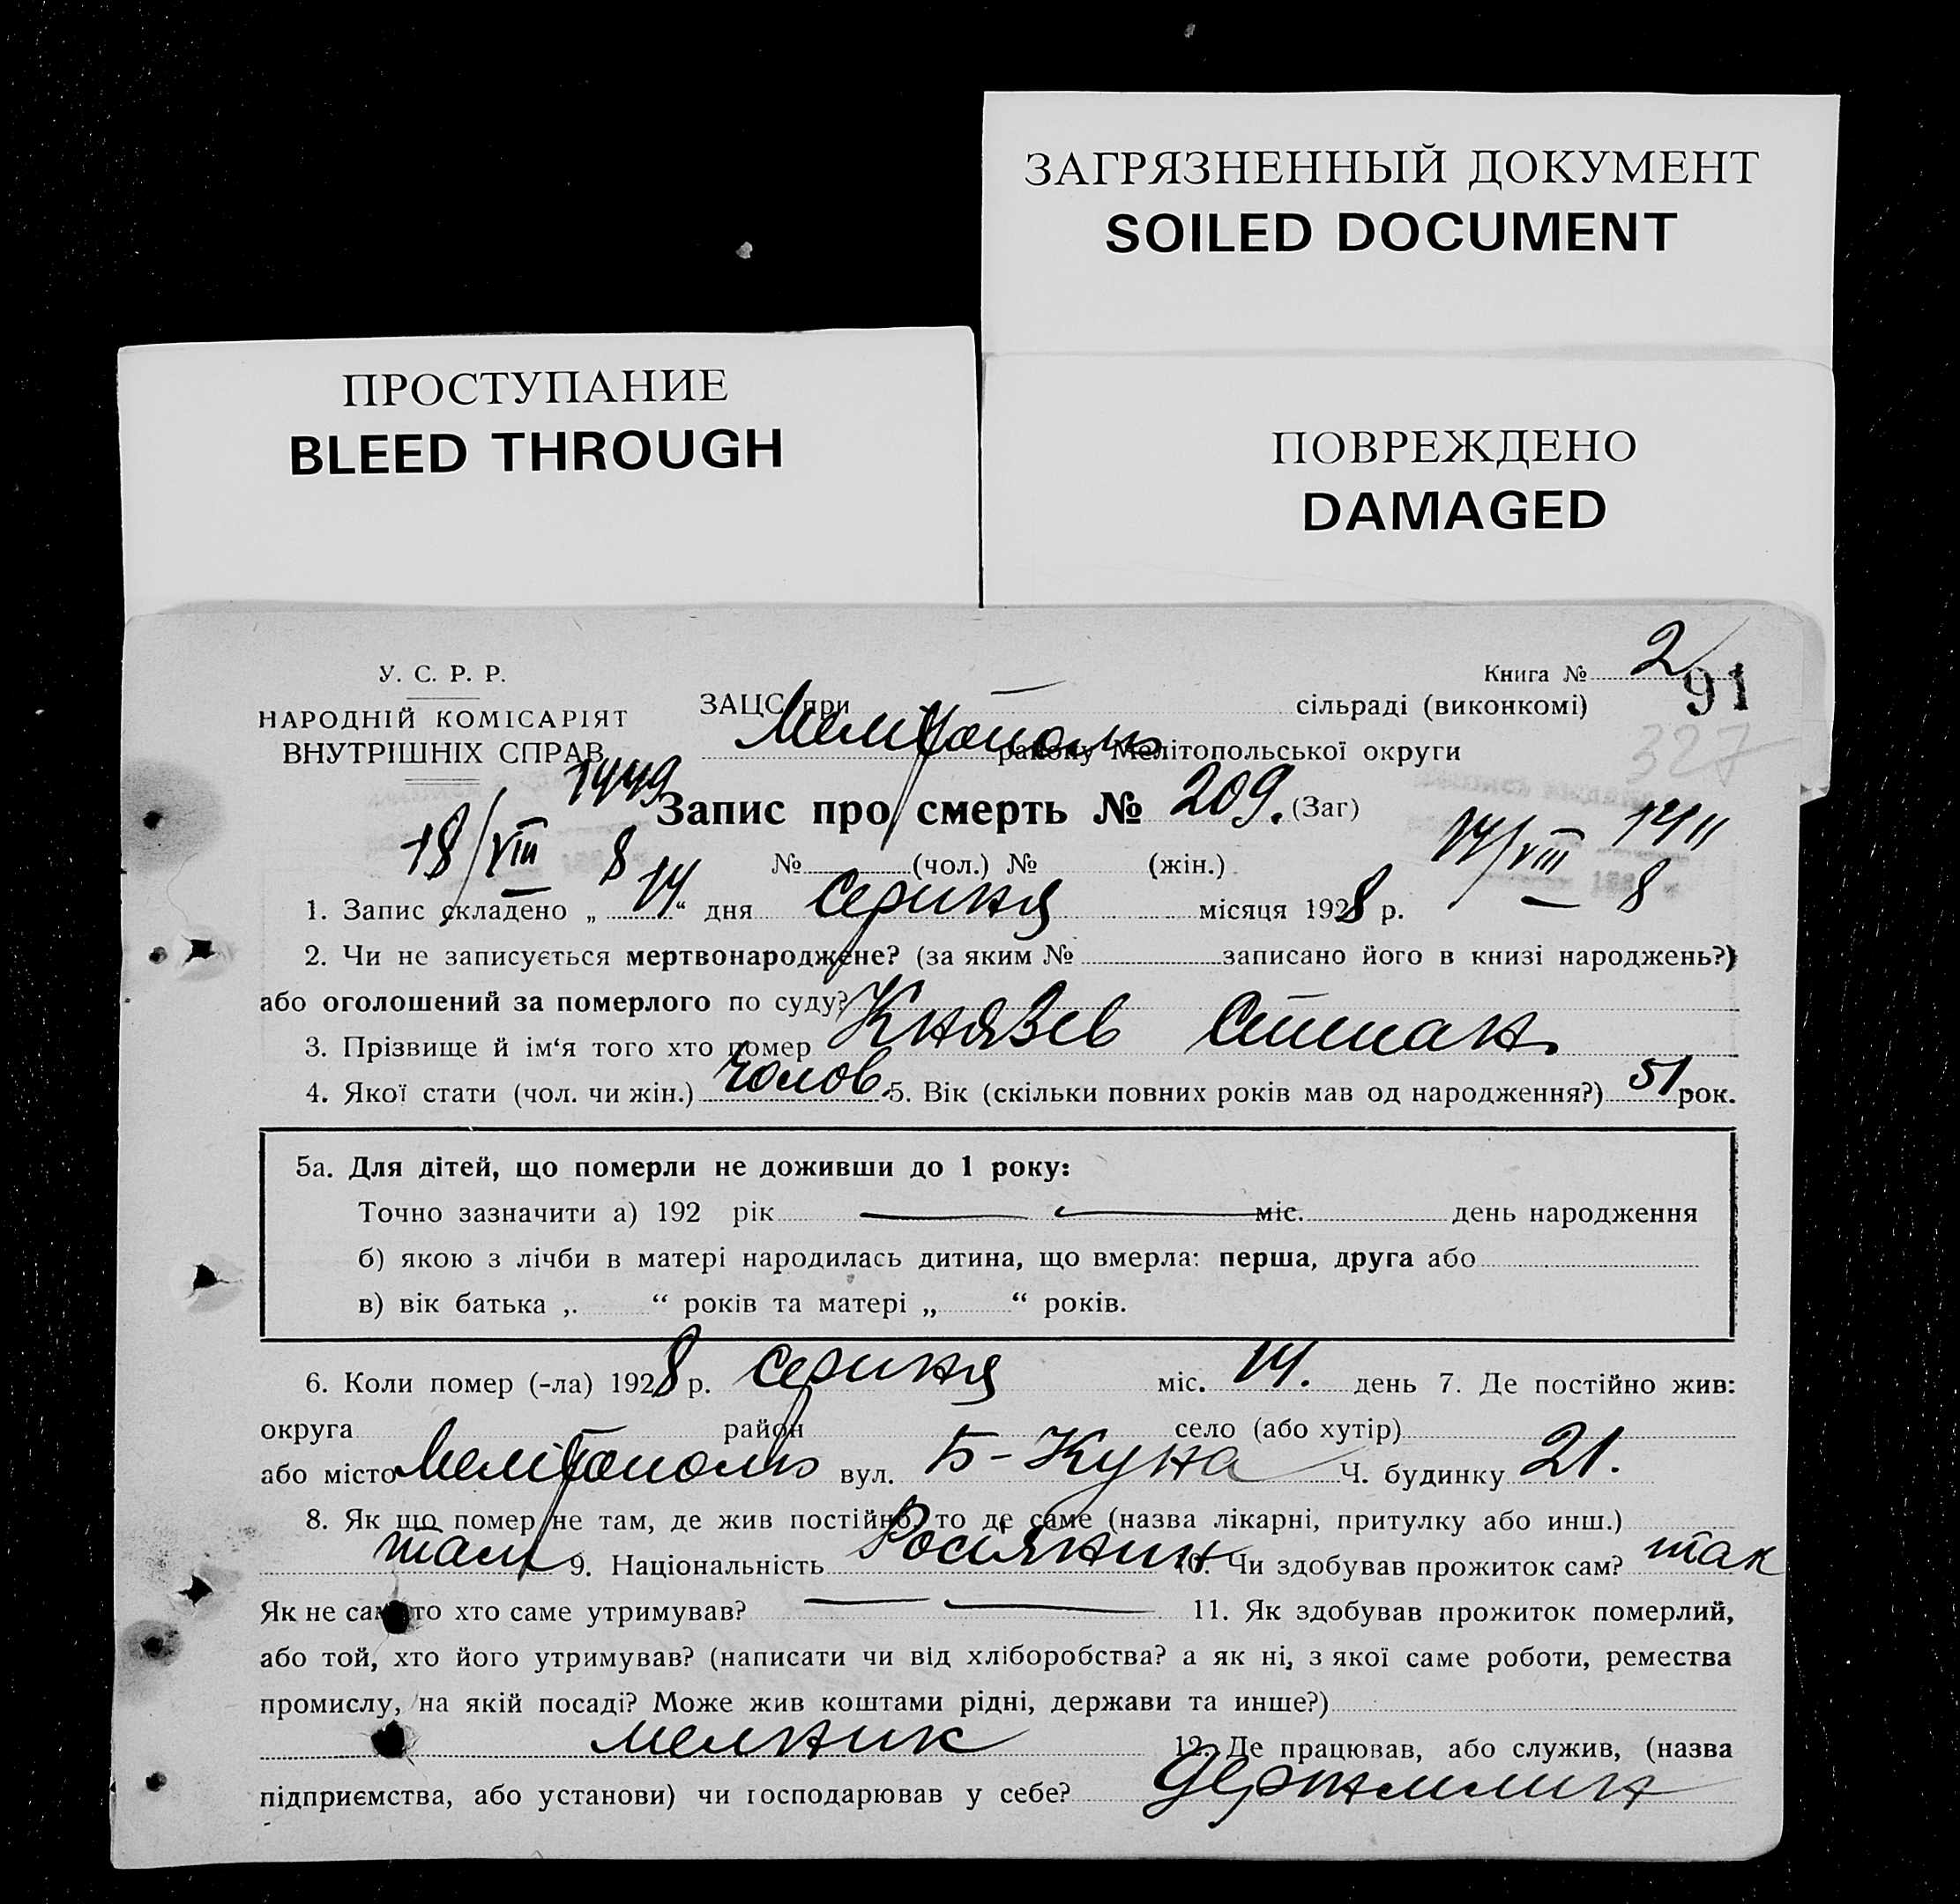 ЗАГРЯЗНЕННЫЙ ДОКУМЕНТ
SOILED DOCUMENT
ПРОСТУПАНИЕ
BLEED THROUGH
ПОВРЕЖДЕНО
DAMAGED
У. С. Р. Р.
НАРОДНІЙ КОМІСАРІЯТ
ВНУТРІШНІХ СПРАВ
Книга № 2/
91
327
ЗАЦС при сільраді (виконкомі)
Мелітополь району Мелітопольської округи
1449
Запис про смерть № 209. (Заг)
18/VIII 8
14/VIII 8
№ (чол.) № (жін.)
1. Запис складено „14“ дня серпня місяця 1928 р.
2. Чи не записується мертвонароджене? (за яким № записано його в книзі народжень?)
або оголошений за померлого по суду?
3. Прізвище й ім‘я того хто помер Князев Степан
4. Якої стати (чол. чи жін.) Чолов. 5. Вік (скільки повних років мав од народження?) 51 рок.
5а. Для дітей, що померли не доживши до 1 року:
Точно зазначити а) 192 рік міс. день народження
б) якою з лічби в матері народилась дитина, що вмерла: перша, друга або
в) вік батька „ “ років та матері „ “ років.
6. Коли помер (-ла) 1928 р. серпня міс. 14. день 7. Де постійно жив:
округа район село (або хутір)
або місто Мелітополь вул. Б-Куна Ч. будинку 21.
8. Як що помер не там, де жив постійно, то де саме (назва лікарні, притулку або инш.)
там 9. Національність Росіянин 10. Чи здобував прожиток сам? так
Як не сам то хто саме утримував? 11. Як здобував прожиток померлий,
або той, хто його утримував? (написати чи від хліборобства? а як ні, з якої саме роботи, ремества
промислу, на якій посаді? Може жив коштами рідні, держави та инше?)
мелник 12. Де працював, або служив, (назва
підприємства, або установи) чи господарював у себе? Держмлин